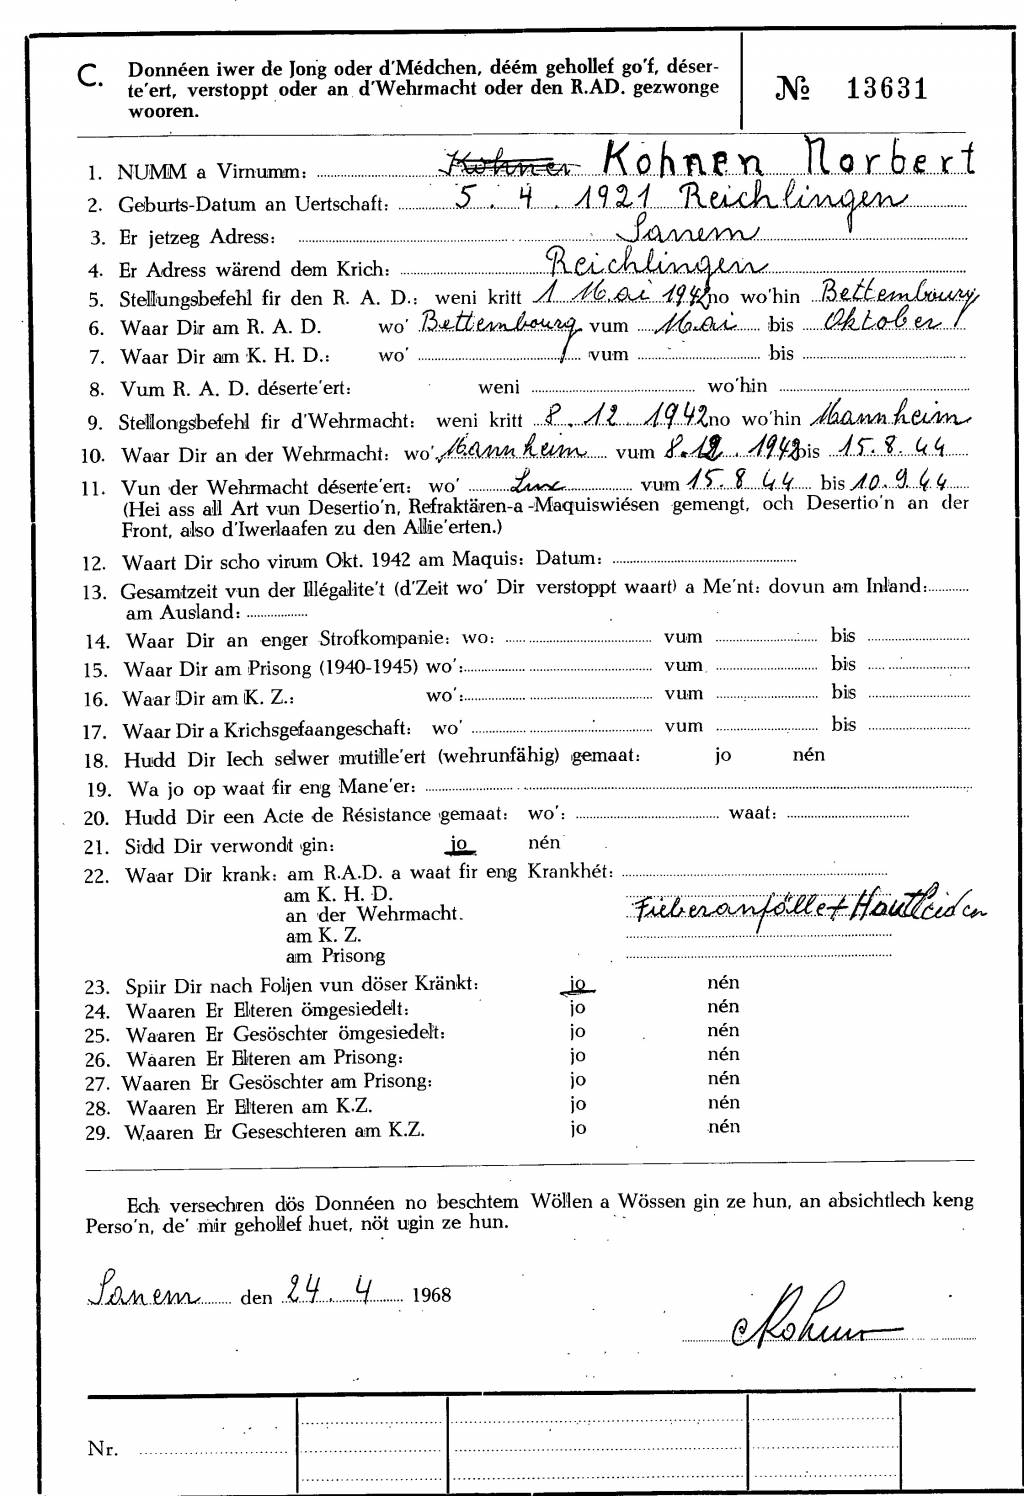 C. Donnéen iwer de Jong oder d'Médchen, déém gehollef go'f, déser-
te'ert, verstoppt oder an d'Wehrmacht oder den R.AD. gezwonge
wooren.
№ 13631
1. NUMM a Virnumm: Kohnen Kohnen Norbert
2. Geburts-Datum an Uertschaft: 5. 4. 1921 Reichlingen
3. Er jetzeg Adress: Sanem
4. Er Adress wärend dem Krich: Reichlingen
5. Stellungsbefehl fir den R. A. D.: weni kritt 1 Mai 1942 no wo'hin Bettembourg
6. Waar Dir am R. A. D. wo' Bettembourg vum Mai bis Oktober
7. Waar Dir am K. H. D.: wo' vum bis
8. Vum R. A. D. déserte'ert: weni wo'hin
9. Stellongsbefehl fir d'Wehrmacht: weni kritt 8. 12. 1942 no wo'hin Mannheim
10. Waar Dir an der Wehrmacht: wo' Mannheim vum 8.12. 1942 bis 15.8.44
11. Vun der Wehrmacht déserte'ert: wo' vum 15.8 44 bis 10.9.44
(Hei ass all Art vun Desertio'n, Refraktären-a-Maquiswiésen gemengt, och Desertio'n an der
Front, also d'Iwerlaafen zu den Allie'erten.)
12. Waart Dir scho virum Okt. 1942 am Maquis: Datum:
13. Gesamtzeit vun der Illégalite't (d'Zeit wo' Dir verstoppt waart) a Me'nt: dovun am Inland:
am Ausland:
14. Waar Dir an enger Strofkompanie: wo: vum bis
15. Waar Dir am Prisong (1940-1945) wo': vum bis
16. Waar Dir am K. Z.: wo': vum bis
17. Waar Dir a Krichsgefaangeschaft: wo' vum bis
18. Hudd Dir Iech selwer mutille'ert (wehrunfähig) gemaat: jo nén
19. Wa jo op waat fir eng Mane'er:
20. Hudd Dir een Acte de Résistance gemaat: wo': waat:
21. Sidd Dir verwondt gin: jo nén
22. Waar Dir krank: am R.A.D. a waat fir eng Krankhét:
am K. H. D.
an der Wehrmacht. Fieberanfälle + Hautleiden
am K. Z.
am Prisong
23. Spiir Dir nach Foljen vun döser Kränkt: jo nén
24. Waaren Er Elteren ömgesiedelt: jo nén
25. Waaren Er Gesöschter ömgesiedelt: jo nén
26. Waaren Er Elteren am Prisong: jo nén
27. Waaren Er Gesöschter am Prisong: jo nén
28. Waaren Er Elteren am K.Z. jo nén
29. Waaren Er Geseschteren am K.Z. jo nén
Ech versechren dös Donnéen no beschtem Wöllen a Wössen gin ze hun, an absichtlech keng
Perso'n, de' mir gehollef huet, nöt ugin ze hun.
Sanem den 24. 4 1968
Kohnen
Nr.